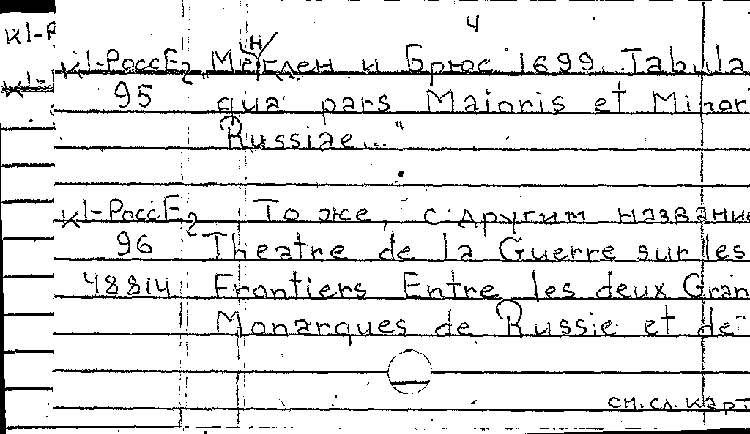 4
К1-РоссЕ₂ Менглен и Брюс 1699. Tabula
95 qua pars Maioris et Minor
Russiae..."
К1-РоссЕ₂ То же, с другим названи
96 Theatre de la Guerre sur les
48814 Frontiers Entre les deux Gran
Monarques de Russie et de
см. сл. карт